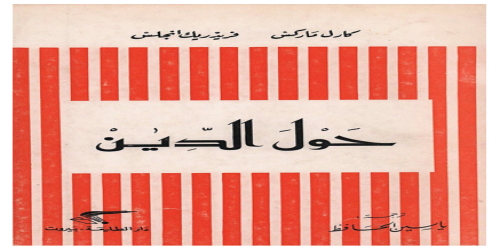 كارل ماركس فريدريك انجلس
حَوْلَ الدِّيْن
ترجمة
ياسين الحافظ
دار الطليعة - بيروت